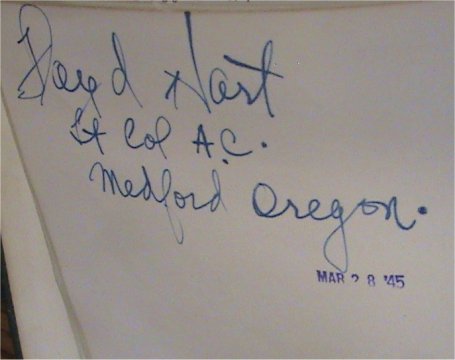 Floyd Hart
Lt Col A.C.
Medford Oregon.
MAR 28 '45